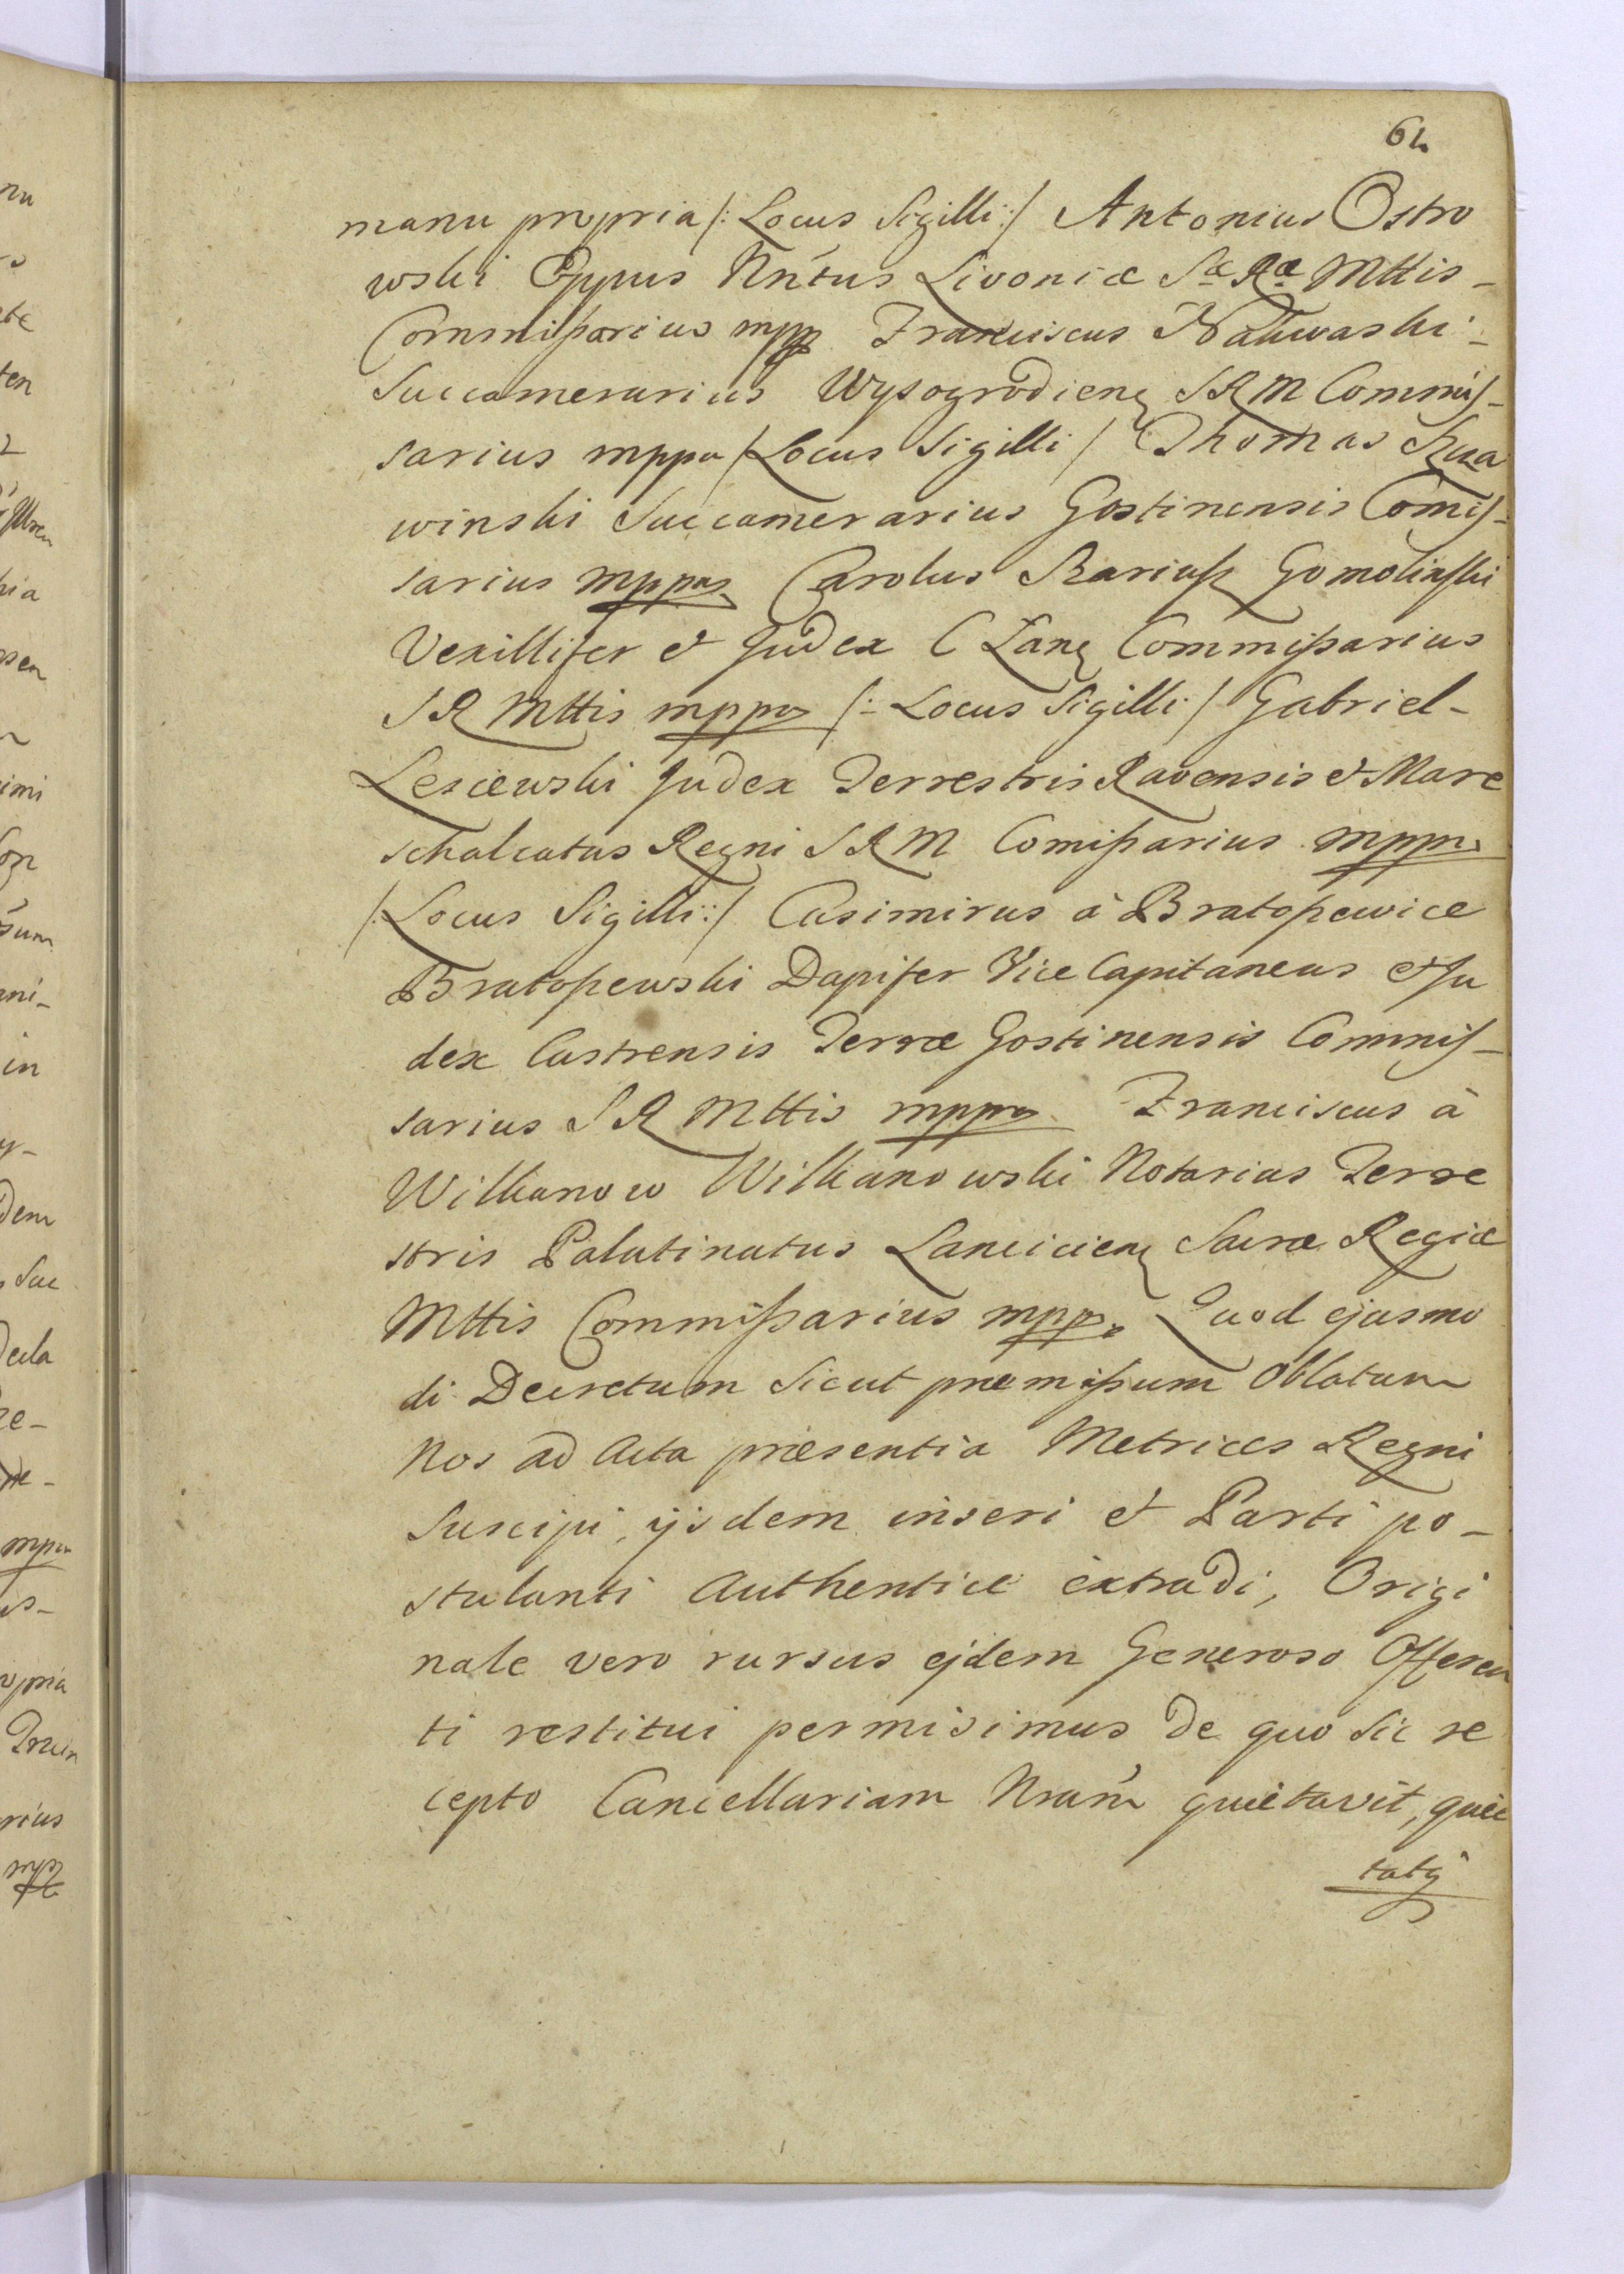 62
manu propria /: Locus Sigilli :/ Antonius Ostro
wski Eppus Nrńtus Livoniæ Sæ Ræ Mttis -
Commissarius mpp Franciscus Nakwaski -
Succamerarius Wysogrodien SRM Commis-
sarius mppa /Locus Sigilli/ Thomas
winski Succamerarius Gostinensis Comis-
sarius mppa Carolus Skariusz Gomolinski
Vexillifer et Judex C Lanę Commissarius
SR Mttis mppa /: Locus Sigilli / Gabriel -
Lesiewski Judex Terrestris Ravensis et Mare
schalcatus Regni SRM Comissarius mppa
/: Locus Sigilli :/ Casimirus à Bratoszewice
Bratoszewski Dapifer Vice Capitaneus et Ju
dex Castrensis Terræ Gostinensis Commis-
sarius SR Mttis mppa Franciscus à
Wilkanow Wilkanowski Notarius Terre
stris Palatinatus Lancicien Sacræ Regiæ
Mttis Commissarius mppa Quod ejusmo
di Decretum Sicut præmissum Oblatum
Nos ad Acta præsentia Metrices Regni
Suscipi, ijsdem inseri et Parti po-
stulanti Authentice extradi, Origi
nale vero rursus ejdem Generoso Offeren
ti restitui permisimus De quo Sic re
cepto Cancellariam Nram̃ quietavit, quie
tatq